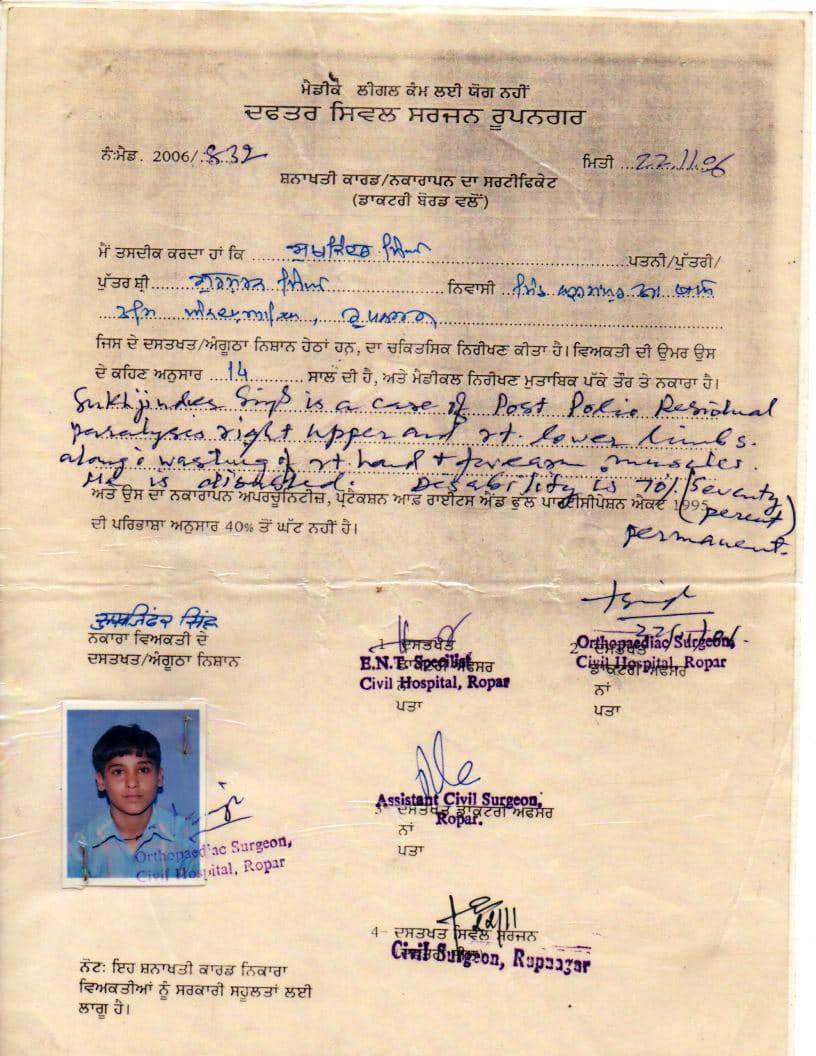 ਮੈਡੀਕੋ ਲੀਗਲ ਕੰਮ ਲਈ ਯੋਗ ਨਹੀਂ
ਦਫਤਰ ਸਿਵਲ ਸਰਜਨ ਰੂਪਨਗਰ
ਨੰ:ਮੈਡ. 2006/.832 ਮਿਤੀ ...22.11.06
ਸ਼ਨਾਖਤੀ ਕਾਰਡ/ਨਕਾਰਾਪਨ ਦਾ ਸਰਟੀਫਿਕੇਟ
(ਡਾਕਟਰੀ ਬੋਰਡ ਵਲੋਂ)
ਮੈਂ ਤਸਦੀਕ ਕਰਦਾ ਹਾਂ ਕਿ ਸੁਖਜਿੰਦਰ ਸਿੰਘ ਪਤਨੀ/ਪੁੱਤਰੀ/
ਪੁੱਤਰ ਸ਼੍ਰੀ ਸਿੰਘ ਨਿਵਾਸੀ ਪਿੰਡ
ਰੂਪਨਗਰ
ਜਿਸ ਦੇ ਦਸਤਖਤ/ਅੰਗੂਠਾ ਨਿਸ਼ਾਨ ਹੇਠਾਂ ਹਨ, ਦਾ ਚਕਿਤਸਿਕ ਨਿਰੀਖਣ ਕੀਤਾ ਹੈ। ਵਿਅਕਤੀ ਦੀ ਉਮਰ ਉਸ
ਦੇ ਕਹਿਣ ਅਨੁਸਾਰ ...14... ਸਾਲ ਦੀ ਹੈ, ਅਤੇ ਮੈਡੀਕਲ ਨਿਰੀਖਣ ਮੁਤਾਬਿਕ ਪੱਕੇ ਤੌਰ ਤੇ ਨਕਾਰਾ ਹੈ।
Sukhjinder Singh is a case of Post Polio Residual
paralysis right upper and rt. lower limbs.
along c wasting of rt hand + forearm muscles.
He is disabled. Disability is 70% (Seventy
ਅਤੇ ਉਸ ਦਾ ਨਕਾਰਾਪਨ ਅਪਰਚੂਨਿਟੀਜ਼, ਪ੍ਰੋਟੈਕਸ਼ਨ ਆਫ਼ ਰਾਈਟਸ ਐਂਡ ਫੁੱਲ ਪਾਰਟੀਸੀਪੇਸ਼ਨ ਐਕਟ 1995 percent)
ਦੀ ਪਰਿਭਾਸ਼ਾ ਅਨੁਸਾਰ 40% ਤੋਂ ਘੱਟ ਨਹੀਂ ਹੈ। permanent.
ਸੁਖਜਿੰਦਰ ਸਿੰਘ
ਨਕਾਰਾ ਵਿਅਕਤੀ ਦੇ
ਦਸਤਖਤ/ਅੰਗੂਠਾ ਨਿਸ਼ਾਨ
1 ਦਸਤਖਤ
ਡਾਕਟਰੀ ਅਫਸਰ
E.N.T. Specilist
Civil Hospital, Ropar
ਨਾਂ
ਪਤਾ
22/11/06.
2 ਦਸਤਖਤ
ਡਾਕਟਰੀ ਅਫਸਰ
Orthopaediac Surgeon,
Civil Hospital, Ropar
ਨਾਂ
ਪਤਾ
Assistant Civil Surgeon,
Ropar.
3 ਦਸਤਖਤ ਡਾਕਟਰੀ ਅਫਸਰ
ਨਾਂ
ਪਤਾ
Orthopaediac Surgeon,
Civil Hospital, Ropar
22/11
4- ਦਸਤਖਤ ਸਿਵਲ ਸਰਜਨ
Civil Surgeon, Rupnagar
ਨੋਟ: ਇਹ ਸ਼ਨਾਖਤੀ ਕਾਰਡ ਨਿਕਾਰਾ
ਵਿਅਕਤੀਆਂ ਨੂੰ ਸਰਕਾਰੀ ਸਹੂਲਤਾਂ ਲਈ
ਲਾਗੂ ਹੈ।